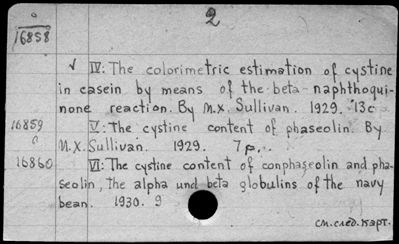 2
16858
√ IV: The colorimetric estimation of cystine
in casein by means of the beta-naphthoqui-
none reaction. By M.X. Sullivan. 1929. 13c
16859 V: The cystine content of phaseolin. By
M.X. Sullivan. 1929. 7p.
16860 VI: The cystine content of conphaseolin and pha-
seolin, the alpha und beta globulins of the navy
bean. 1930. 9
См. след. карт.